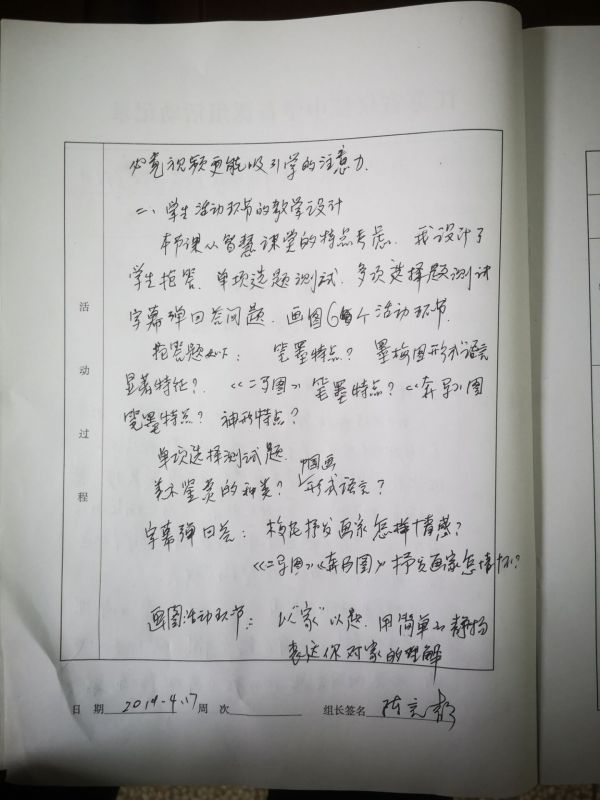 必竟视频更能吸引学的注意力.
二、学生活动环节的教学设计
本节课从智慧课堂的特点考虑. 我设计了
学生抢答. 单项选题测试. 多项选择题测试
字幕弹回答问题. 画图6个活动环节.
抢答题如下: 笔墨特点? 墨梅图形式语言
显著特征? 《二马图》笔墨特点? 《奔马》图
笔墨特点? 神形特点?
单项选择测试题.
美术鉴赏的种类? 国画形式语言?
字幕弹回答: 梅花抒发画家怎样情感?
《二马图》《奔马图》抒发画家怎情怀?
画图活动环节: 以"家"以题. 用简单的静物
表达你对家的理解
活动过程
日 期 2019-4.17 周 次 组长签名